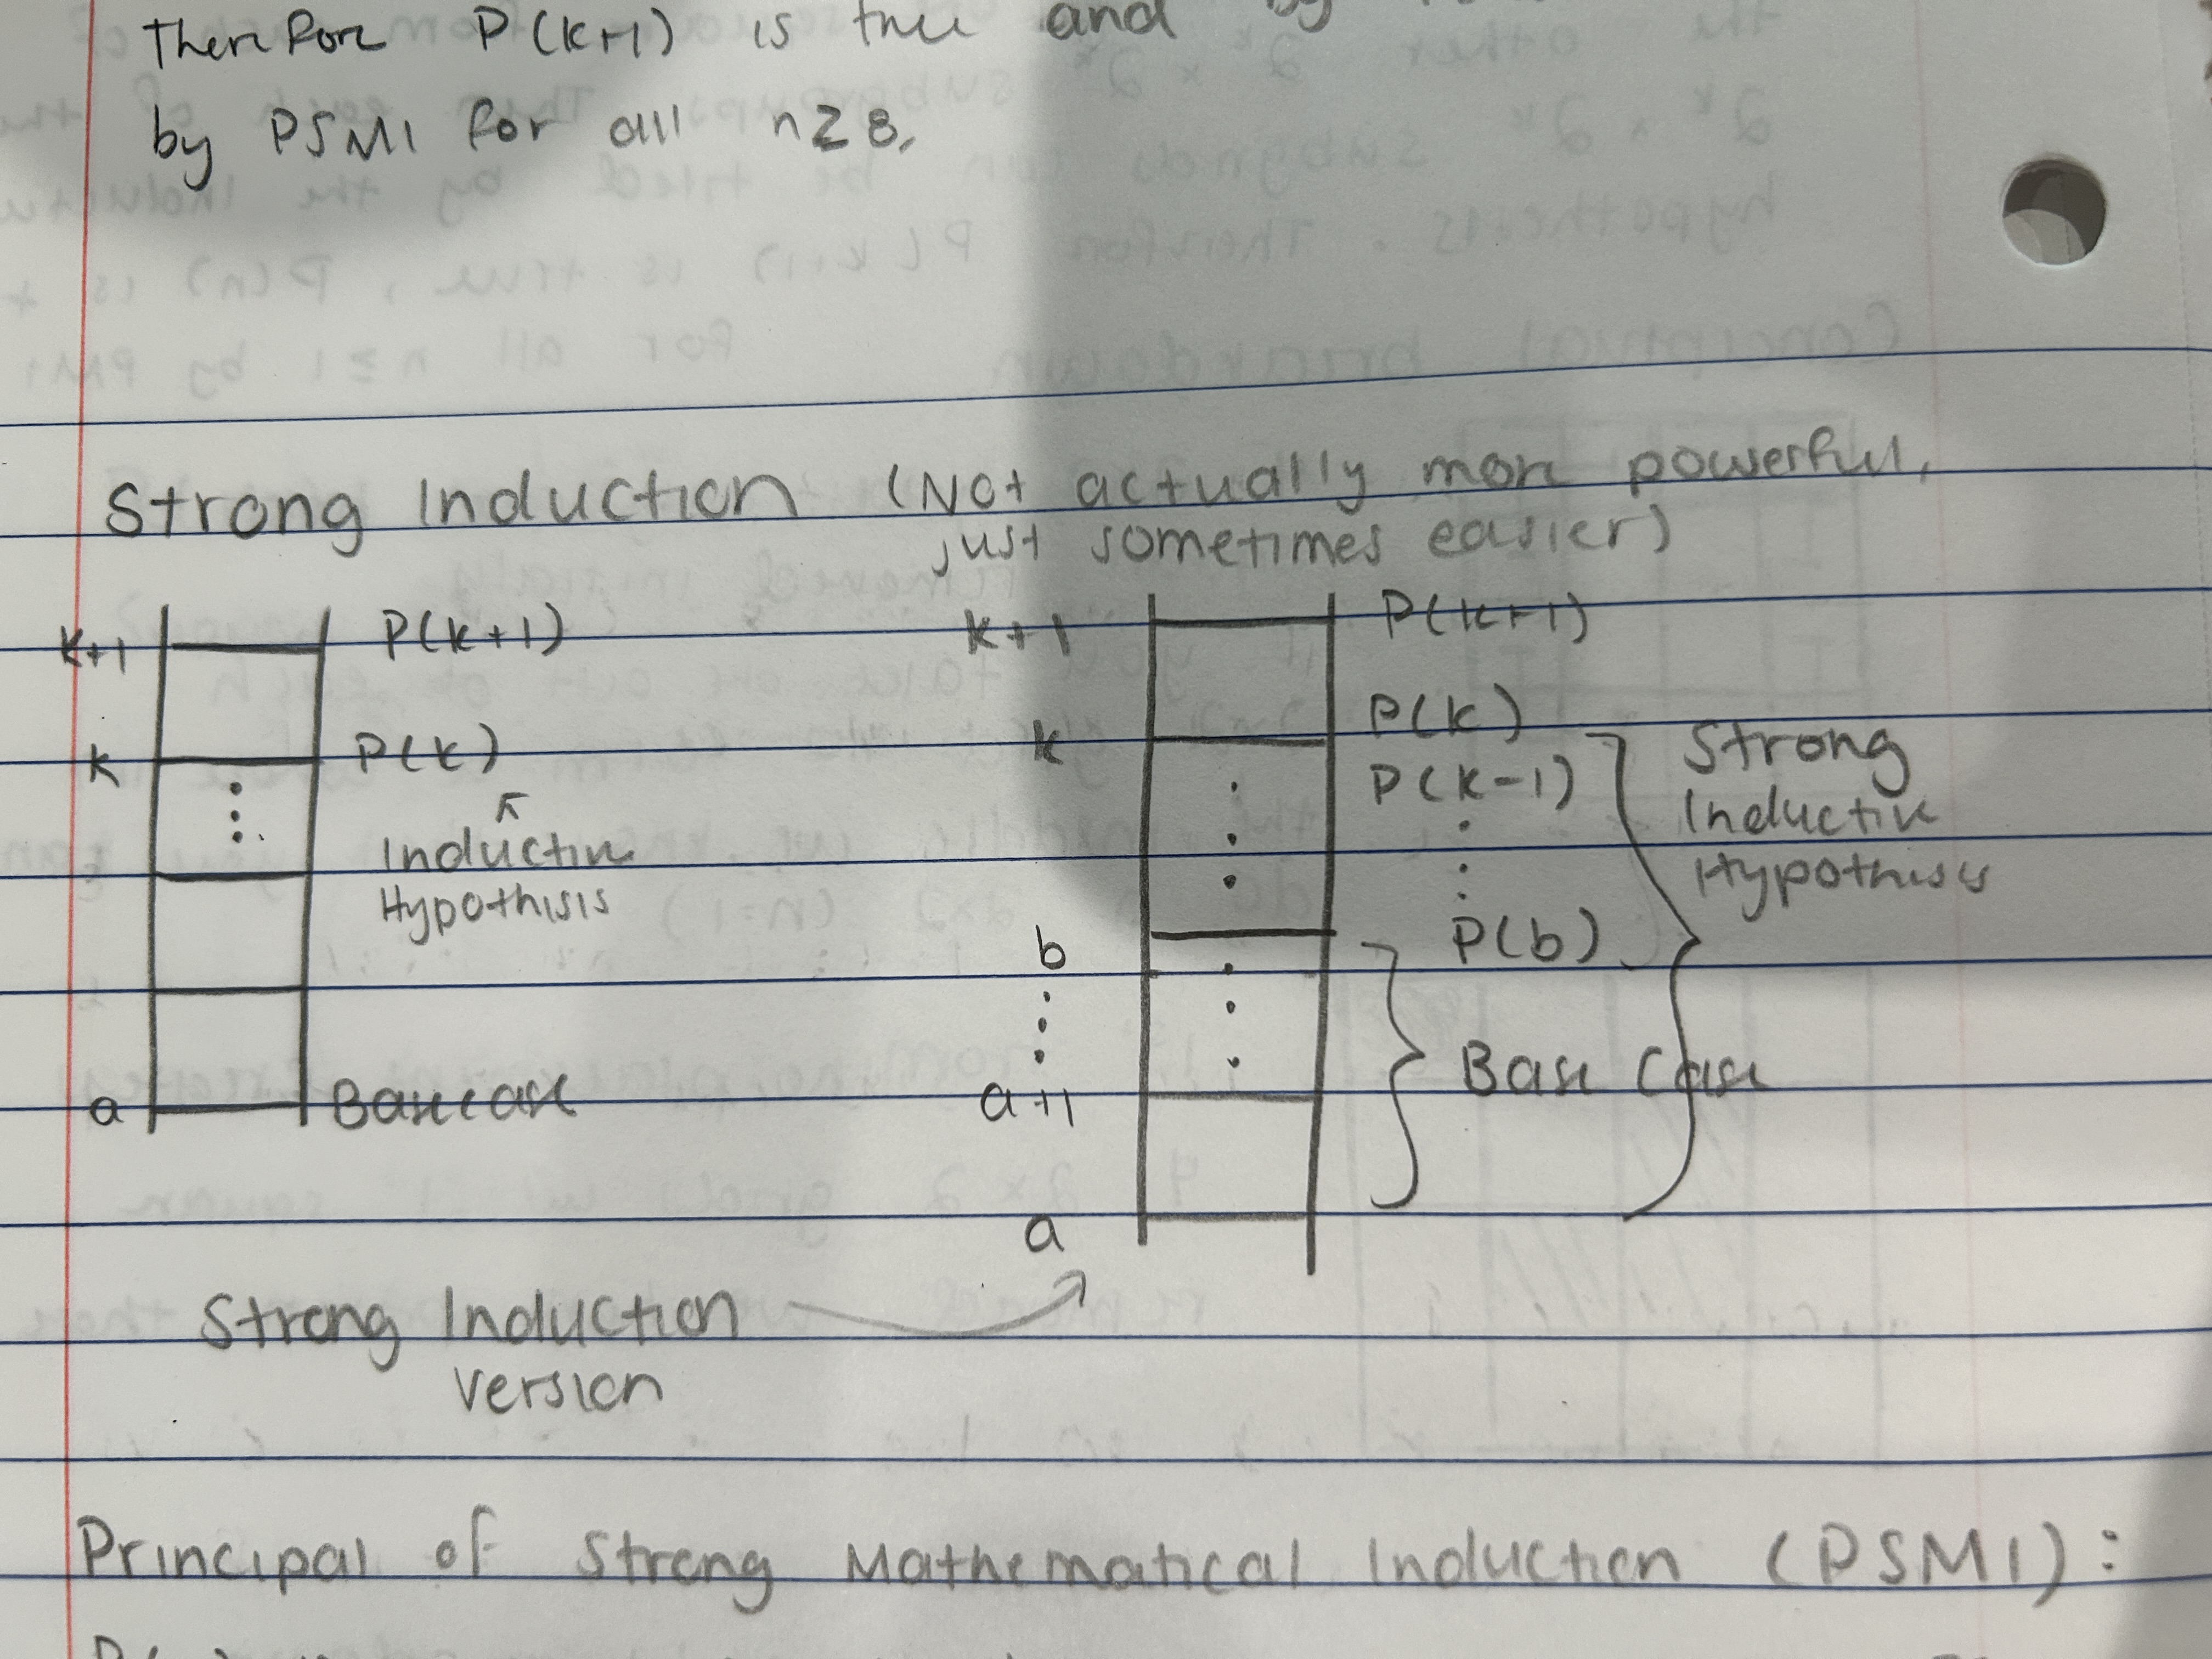 Therefore P(k+1) is true and by
by PSMI for all n≥8.
Strong Induction (Not actually more powerful,
just sometimes easier)
k+1 P(k+1)
k P(k)
Inductive
Hypothisis
a Base case
k+1 P(k+1)
k P(k)
P(k-1)
Strong
Inductive
Hypothisis
b P(b)
a+1 Base Case
a
Strong Induction
version
Principal of Strong Mathematical Induction (PSMI):